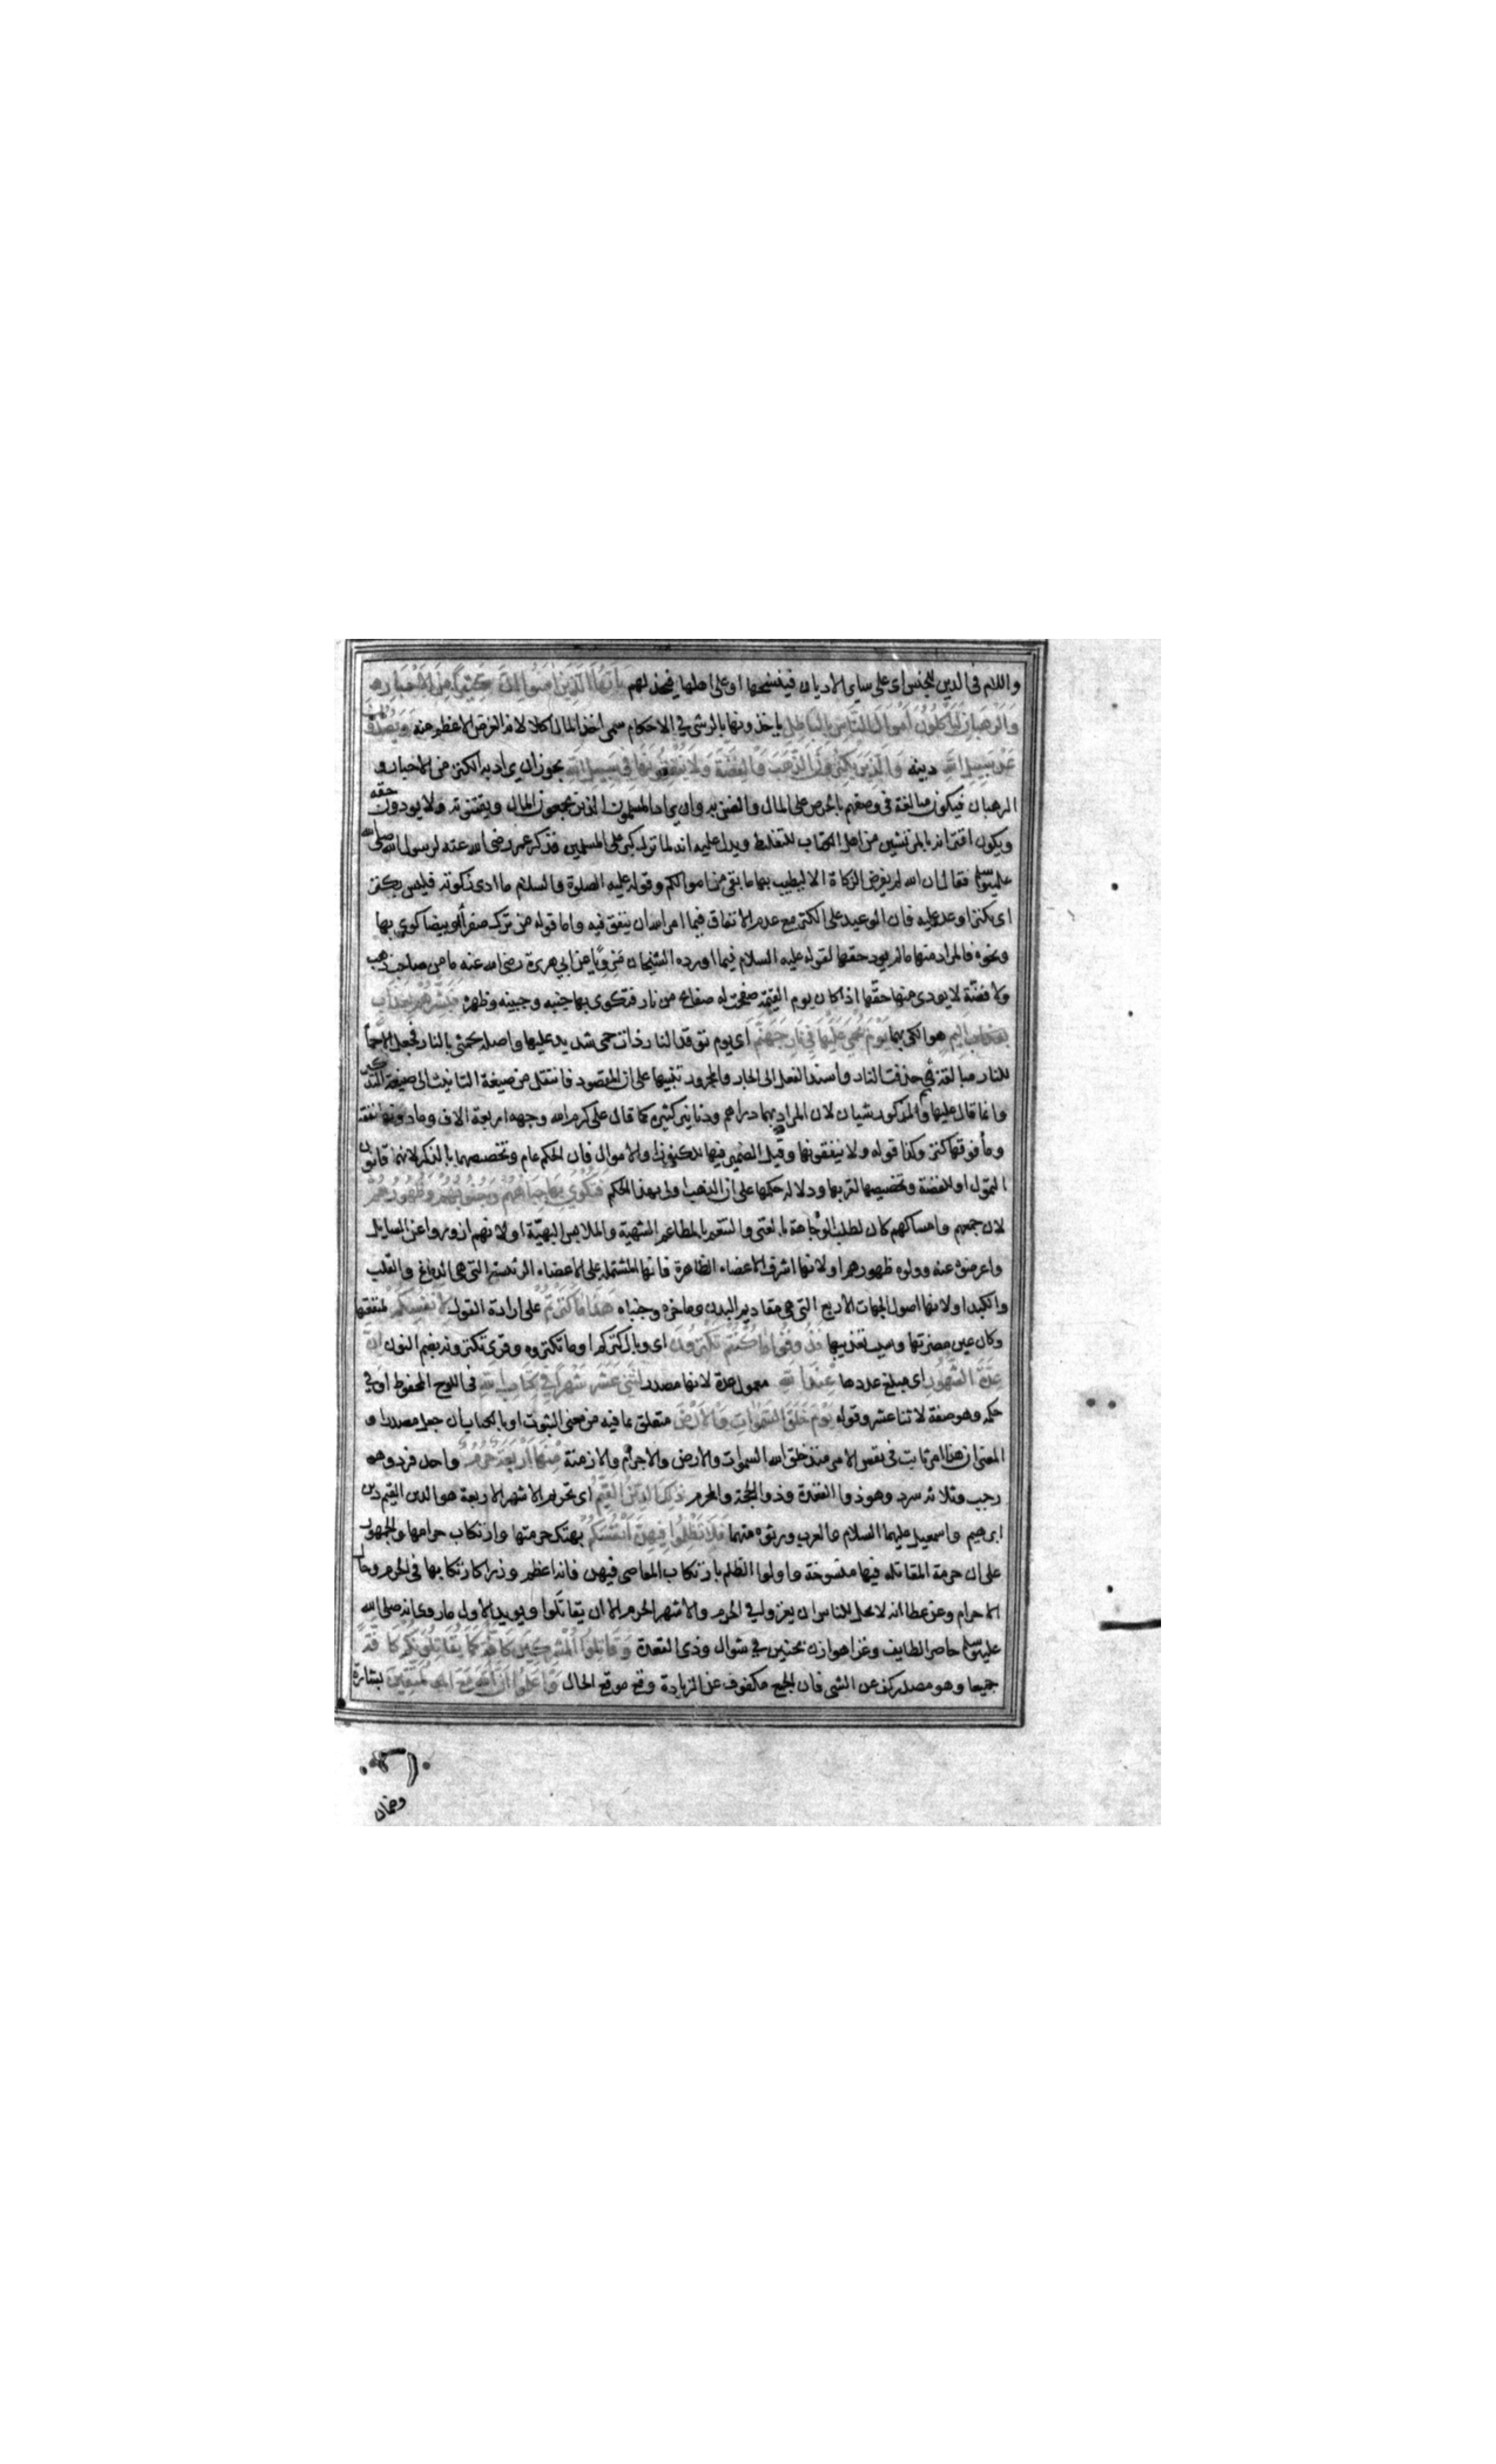 واللام فى الدين للجنس اى على ساير الاديان فينسخها او على اهلها فيخذلهم يَا اَيُّهَا الَّذِينَ اٰمَنُوا اِنَّ كَثِيرًا مِنَ الْاَحْبَارِ
وَالرُّهْبَانِ لَيَأْكُلُونَ اَمْوَالَ النَّاسِ بِالْبَاطِلِ ياخذونها بالرشى في الاحكام سمى اخذ المال اكلا لانه الغرض الاعظم منه وَيَصُدُّونَ
عَنْ سَبِيلِ اللَّهِ دينه وَالَّذِينَ يَكْنِزُونَ الذَّهَبَ وَالْفِضَّةَ وَلَا يُنْفِقُونَهَا فِي سَبِيلِ اللَّهِ يجوز ان يراد به الكثير من الاحبار و
الرهبان فيكون مبالغة فى وصفهم بالحرص على المال والضن به وان يراد المسلمون الذين يجمعون المال ويقتنونه ولا يودون حقه
ويكون اقترانه بالمرتشين من اهل الكتاب للتغليظ ويدل عليه انه لما نزل كبر على المسلمين فذكر عمر رضى الله عنه لرسول الله صلى الله
عليه وسلم فقال ان الله لم يفرض الزكاة الا ليطيب بها ما بقى من اموالكم وقوله عليه الصلوة والسلام ما ادى زكوته فليس بكنز
اى بكنز اوعد عليه فان الوعيد على الكنز مع عدم الانفاق فيما امر الله ان ينفق فيه واما قوله من ترك صفرا او بيضا كوي بها
ونحوه فالمراد منها ما لم يود حقها لقوله عليه السلام فيما اورده الشيخان مرويا عن ابي هريرة رضى الله عنه ما من صاحب ذهب
ولا فضّة لا يودى منها حقّها اذا كان يوم القيمة صفحت له صفايح من نار فتكوى بها جنبه وجبينه وظهره فَبَشِّرْهُمْ بِعَذَابٍ
بِعَذَابٍ اَلِيمٍ هو الكى بهما يَوْمَ يُحْمَى عَلَيْهَا فِي نَارِ جَهَنَّمَ اى يوم توقد النار ذات حمى شديد عليها واصله تحمى بالنار فجعل الاحما
للنار مبالغة ثم حذفت النار واسند الفعل الى الجار والمجرور تنبيها على ان المقصود فانتقل من صيغة التانيث الى صيغة التذكير
وانما قال عليها والمذكور شيان لان المراد بهما دراهم ودنانير كثيره كما قال على كرم الله وجهه اربعة الاف وما دونها نفقة
وما فوقها كنز وكذا قوله ولا ينفقونها وقيل الضمير فيها للكنوز او الاموال فان الحكم عام وتخصيصهما بالذكر لانهما قانون
التمول او للفضة وتخصيصها لقربها ودلالة حكمها على ان الذهب اولى بهذا الحكم فَتُكْوَى بِهَا جِبَاهُهُمْ وَجُنُوبُهُمْ وَظُهُورُهُمْ
لان جمعهم وامساكهم كان لطلب الوجاهة بالغنى والتنعم بالمطاعم الشهية والملابس البهيّة او لانهم ازوروا عن السايل
واعرضوا عنه وولوه ظهورهم او لانها اشرف الاعضاء الظاهرة فانها المشتملة على الاعضاء الرئيسة التى هى الدماغ والقلب
والكبد او لانها اصول الجهات الاربع التى هى مقاديم البدن وماخره وجنباه هٰذَا مَا كَنَزْتُمْ على ارادة القول لِاَنْفُسِكُمْ لمنفعتها
وكان عين مضرتها وسبب تعذيبها فَذُوقُوا مَا كُنْتُمْ تَكْنِزُونَ اى وبال كنزكم او ما تكنزوه وقرى تكنزون بضم النون اِنَّ
عِدَّةَ الشُّهُورِ اى مبلغ عددها عِنْدَ اللَّهِ معمول عدة لانها مصدر اثْنَى عَشَرَ شَهْرًا فِي كِتَابِ اللَّهِ فى اللوح المحفوظ او في
حكمه وهو صفة لاثنا عشر وقوله يَوْمَ خَلَقَ السَّمٰوَاتِ وَالْاَرْضَ متعلق بما فيه من معنى الثبوت او بالكتاب ان جعل مصدرا و
المعنى ان هذا امر ثابت فى نفس الامر منذ خلق الله السموات والارض والاجرام والازمنة مِنْهَا اَرْبَعَةٌ حُرُمٌ واحد فرد وهو
رجب وثلاثه سرد وهو ذو القعدة وذو الحجة والمحرم ذٰلِكَ الدِّينُ الْقَيِّمُ اى تحريم الاشهر الاربعة هو الدين القيم دين
ابرهيم واسمعيل عليهما السلام والعرب ورثوه منهما فَلَا تَظْلِمُوا فِيهِنَّ اَنْفُسَكُمْ بهتك حرمتها وارتكاب حرامها والجمهور
على ان حرمة المقاتله فيها منسوخة واولوا الظلم بارتكاب المعاصى فيهن فانه اعظم وزرا كارتكابها فى الحرم وحال
الاحرام وعن عطا انه لا يحل للناس ان يغزوا في الحرم والاشهر الحرم الا ان يقاتَلوا ويويد الاول ما روى انه صلى الله
عليه وسلم حاصر الطايف وغزا هوازن بحنين في شوال وذى القعدة وَقَاتِلُوا الْمُشْرِكِينَ كَافَّةً كَمَا يُقَاتِلُونَكُمْ كَافَّةً
جميعا وهو مصدر كف عن الشى فان الجمع مكفوف عن الزيادة وقع موقع الحال وَاعْلَمُوا اَنَّ اللَّهَ مَعَ الْمُتَّقِينَ بشارة
وضمان